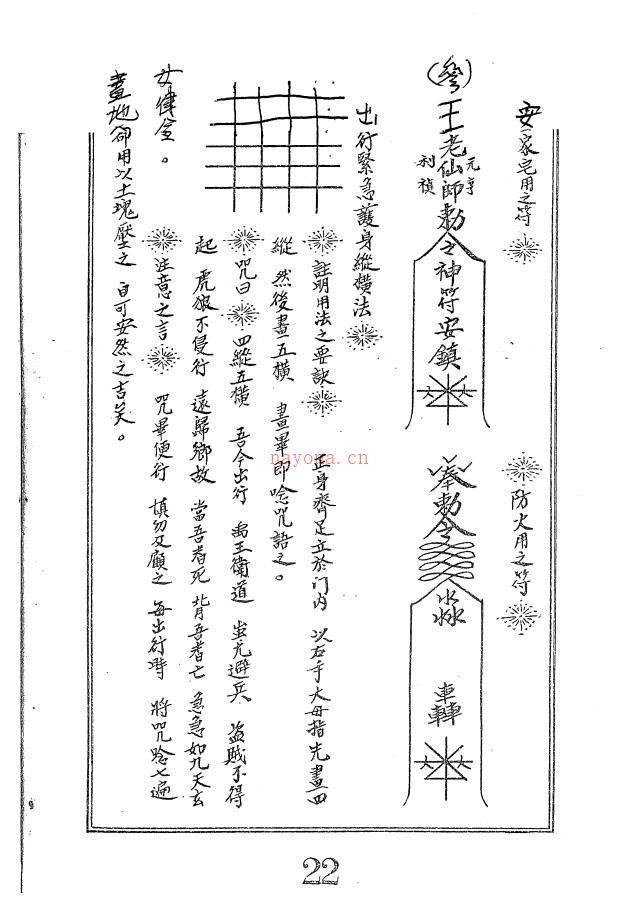 安家宅用之符
防火用之符
(參)王老仙師敕之神符安鎮
元亨
利禎
大 大
奉敕令
轟
大 大
出行緊急護身縱橫法
註明用法之要訣 正身齊足立於门内 以右手大母指先畫四
縱 然後畫五橫 畫畢即唸咒語之。
咒曰 四縱五橫 吾今出行 禹王衛道 蚩尤避兵 盜賊不得
起 虎狼不侵行 遠歸鄉故 當吾者死 背吾者亡 急急如九天玄
女偉令。
注意之言 咒畢便行 慎勿反顧之 每出行時 將咒唸七遍
畫地卻用以土塊壓之 自可安然之吉矣。
nayona.cn
22